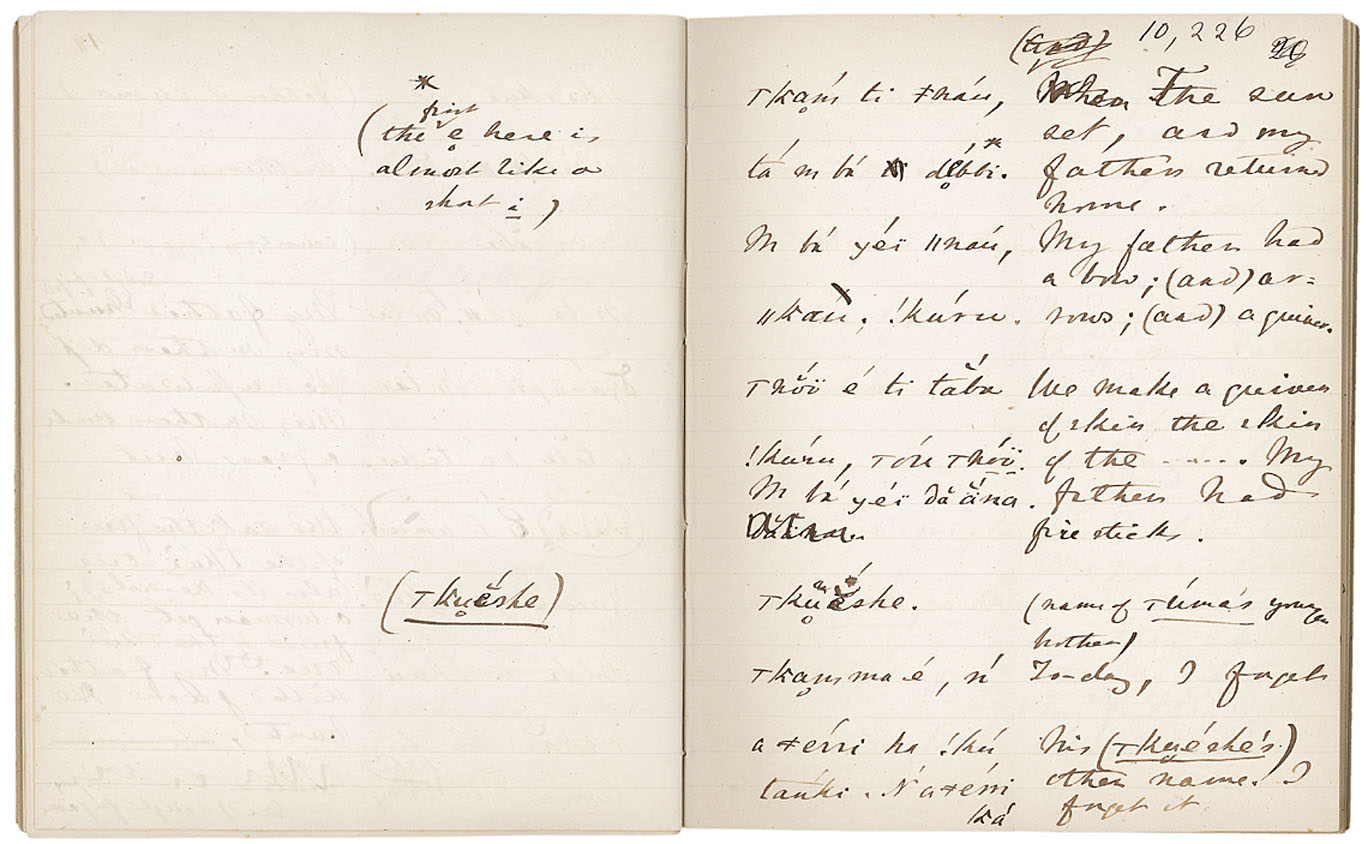 *
(the first e̥ here is
almost like a
short i)
(Tku̥ĕ́she)
(and) 10,226
Tkḁḿs ti ǂnáu, When The sun
set, and my
tá m bá dé̥bbi.* father returned
home.
M bá yéï ǁnaú, My father had
a bow; (and) ar=
ǁkàu; !kúru. rows; (and) a quiver.
Tnŏ́ï é ti tăba We make a quiver
of skin the skin
!kúru, Tóu Tnóï. of the ----. My
M bá yéï dă ắna. father had
fire sticks.
Tku̥ĕ́she. (name of Túma's younger
brother)
Tkḁmsma-é, ń To-day, I forget
a ǂérri ha !kú his (Tku̥éshé's)
other name. I
taúki. Ń a ǂérri forget it.
ǀká